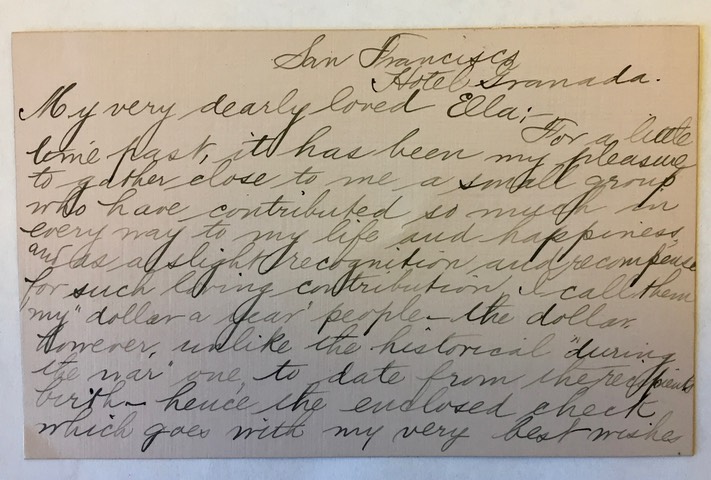 San Francisco
Hotel Granada.
My very dearly loved Ella:-
For a little
time past, it has been my pleasure
to gather close to me a small group
who have contributed so much in
every way to my life and happiness,
and as a slight recognition and recompense
for such loving contribution, I call them
my "dollar a year" people - the dollar,
however, unlike the historical "during
the war" one, to date from the recipients
birth - hence the enclosed check
which goes with my very best wishes